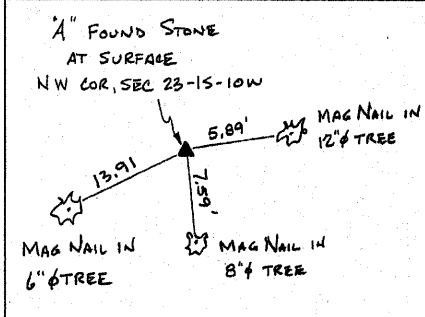 "A" FOUND STONE
AT SURFACE
NW COR, SEC 23-15-10W
5.89'
MAG NAIL IN
12"⌀ TREE
13.91
7.59'
MAG NAIL IN
6"⌀ TREE
MAG NAIL IN
8"⌀ TREE